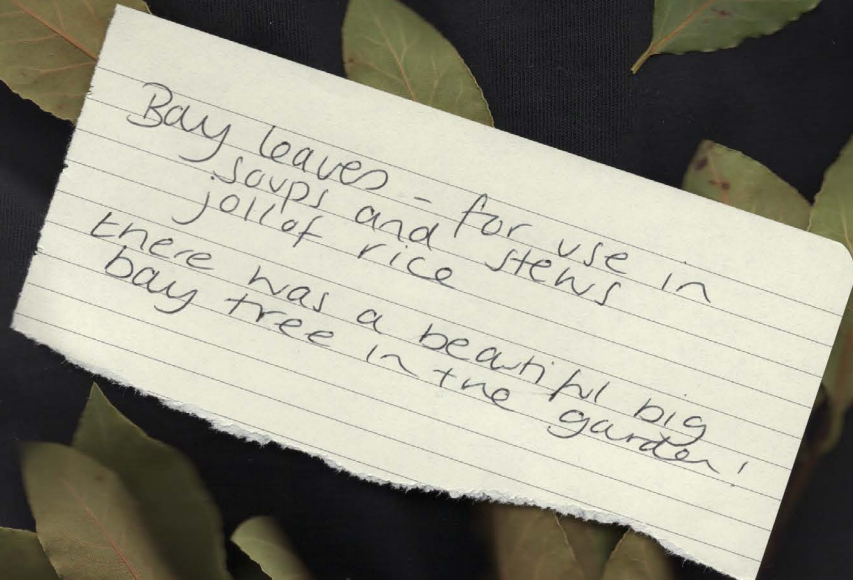 Bay leaves - for use in
soups and stews
jollof rice
there was a beautiful big
bay tree in the garden!